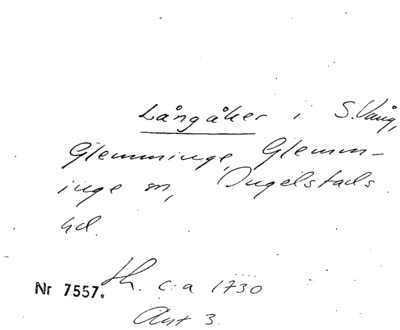 Långåker i S. Vång,
Glemminge, Glemm-
inge sn, Ingelstads
hd.
Nr 7557. th. c:a 1730
Ant 3.